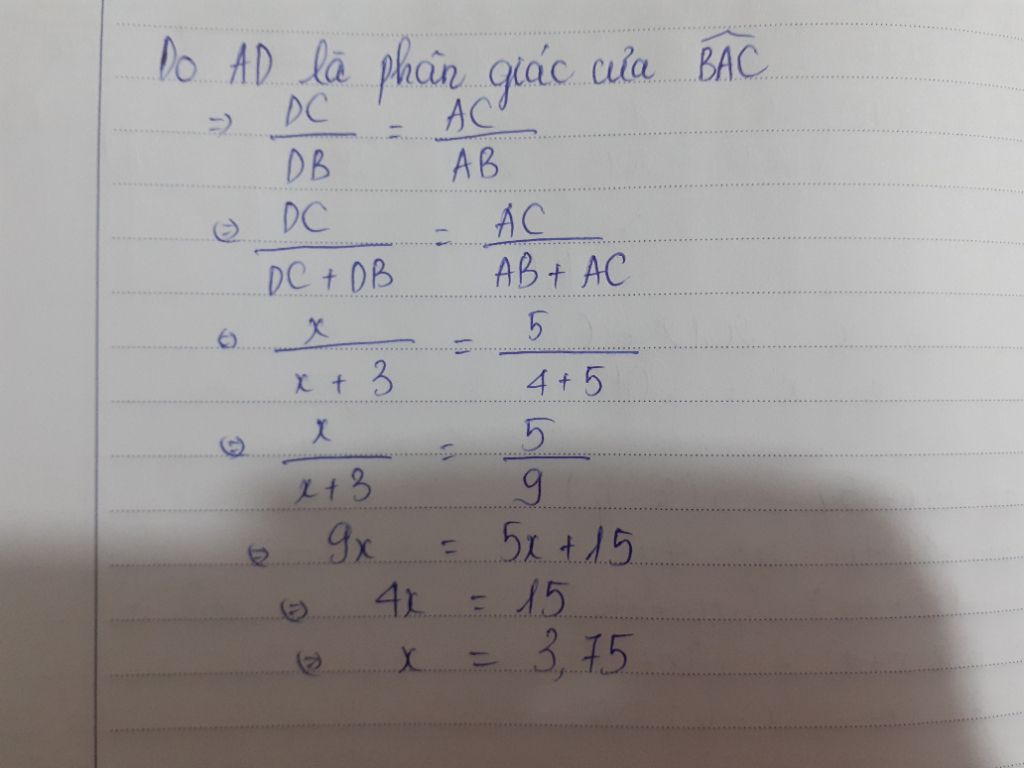 Do AD là phân giác của \widehat{BAC}
⇒ \frac{DC}{DB} = \frac{AC}{AB}
⇔ \frac{DC}{DC + DB} = \frac{AC}{AB + AC}
⇔ \frac{x}{x + 3} = \frac{5}{4 + 5}
⇔ \frac{x}{x + 3} = \frac{5}{9}
⇔ 9x = 5x + 15
⇔ 4x = 15
⇔ x = 3,75